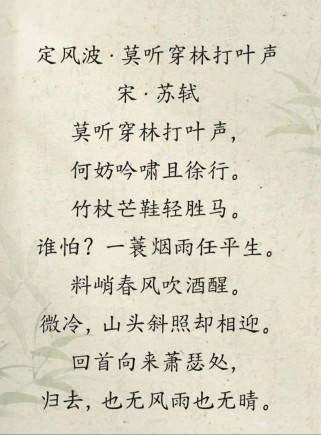 定风波·莫听穿林打叶声
宋·苏轼
莫听穿林打叶声，
何妨吟啸且徐行。
竹杖芒鞋轻胜马。
谁怕？一蓑烟雨任平生。
料峭春风吹酒醒。
微冷，山头斜照却相迎。
回首向来萧瑟处，
归去，也无风雨也无晴。